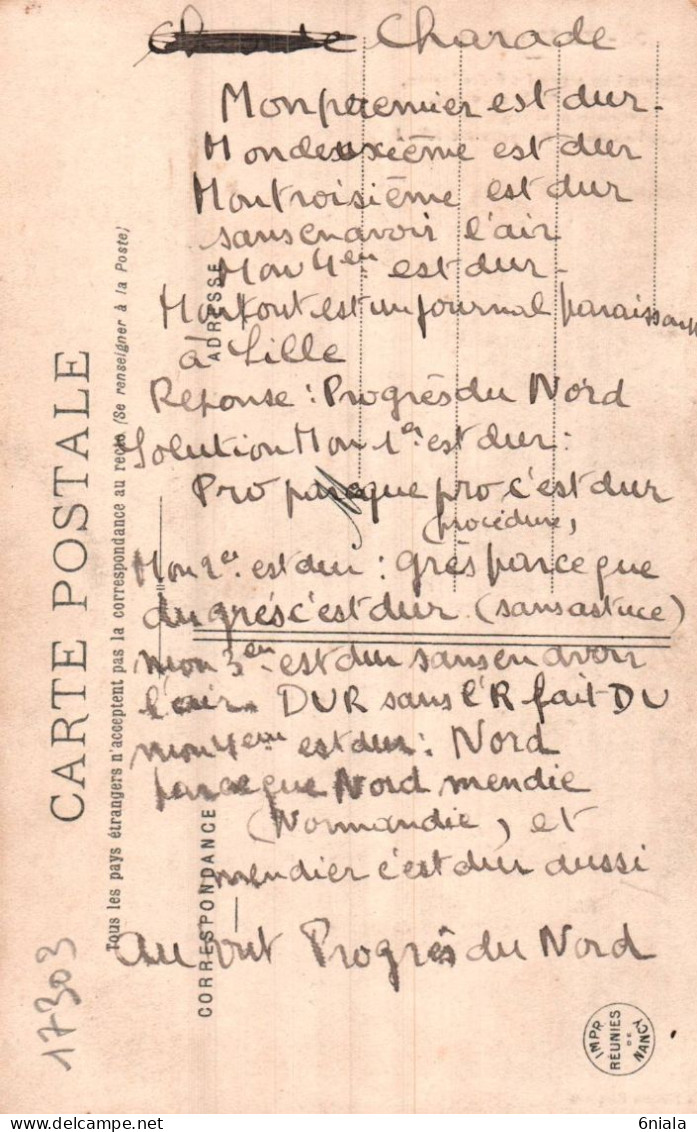 Charade
Mon premier est dur.
Mon deuxième est dur
Mon troisième est dur
sans en avoir l'air
Mon 4em est dur.
Mon tout est un journal paraissant
à Lille
Réponse : Progrès du Nord
Solution Mon 1er est dur :
Pro parceque pro c'est dur
(procédure)
Mon 2em est dur : grès parceque
du grés c'est dur (sans astuce)
mon 3em est dur sans en avoir
l'air. DUR sans l'R fait DU
mon 4em est dur : Nord
parceque Nord mendie
(Normandie), et
mendier c'est dur aussi
Au tout Progrès du Nord
CARTE POSTALE
Tous les pays étrangers n'acceptent pas la correspondance au recto (Se renseigner à la Poste)
CORRESPONDANCE
ADRESSE
17303
IMPR. RÉUNIES DE NANCY
delcampe.net
6niala